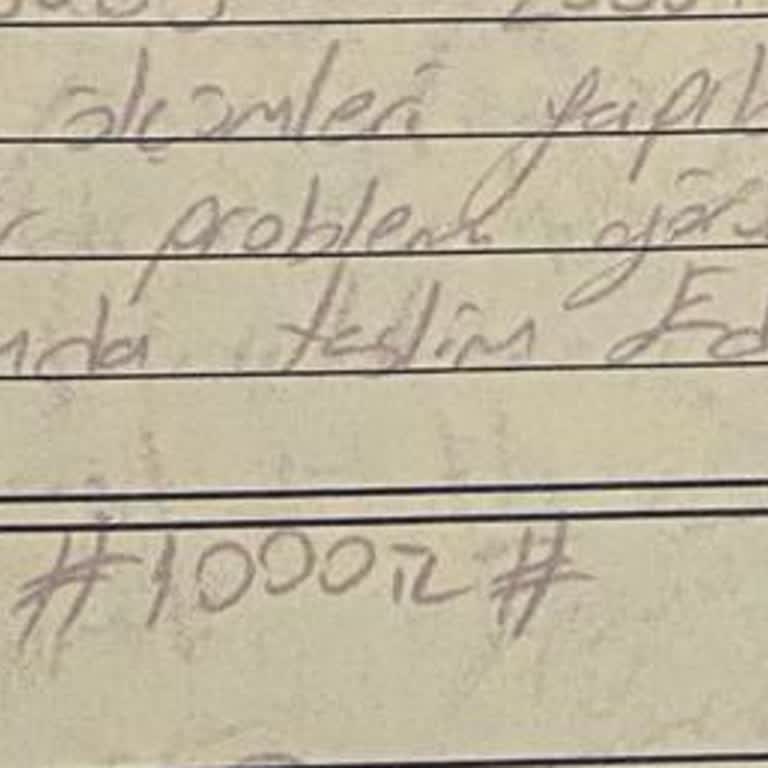 ölçümleri yapıl
r problem gör
nda teslim Ed
#1000TL#